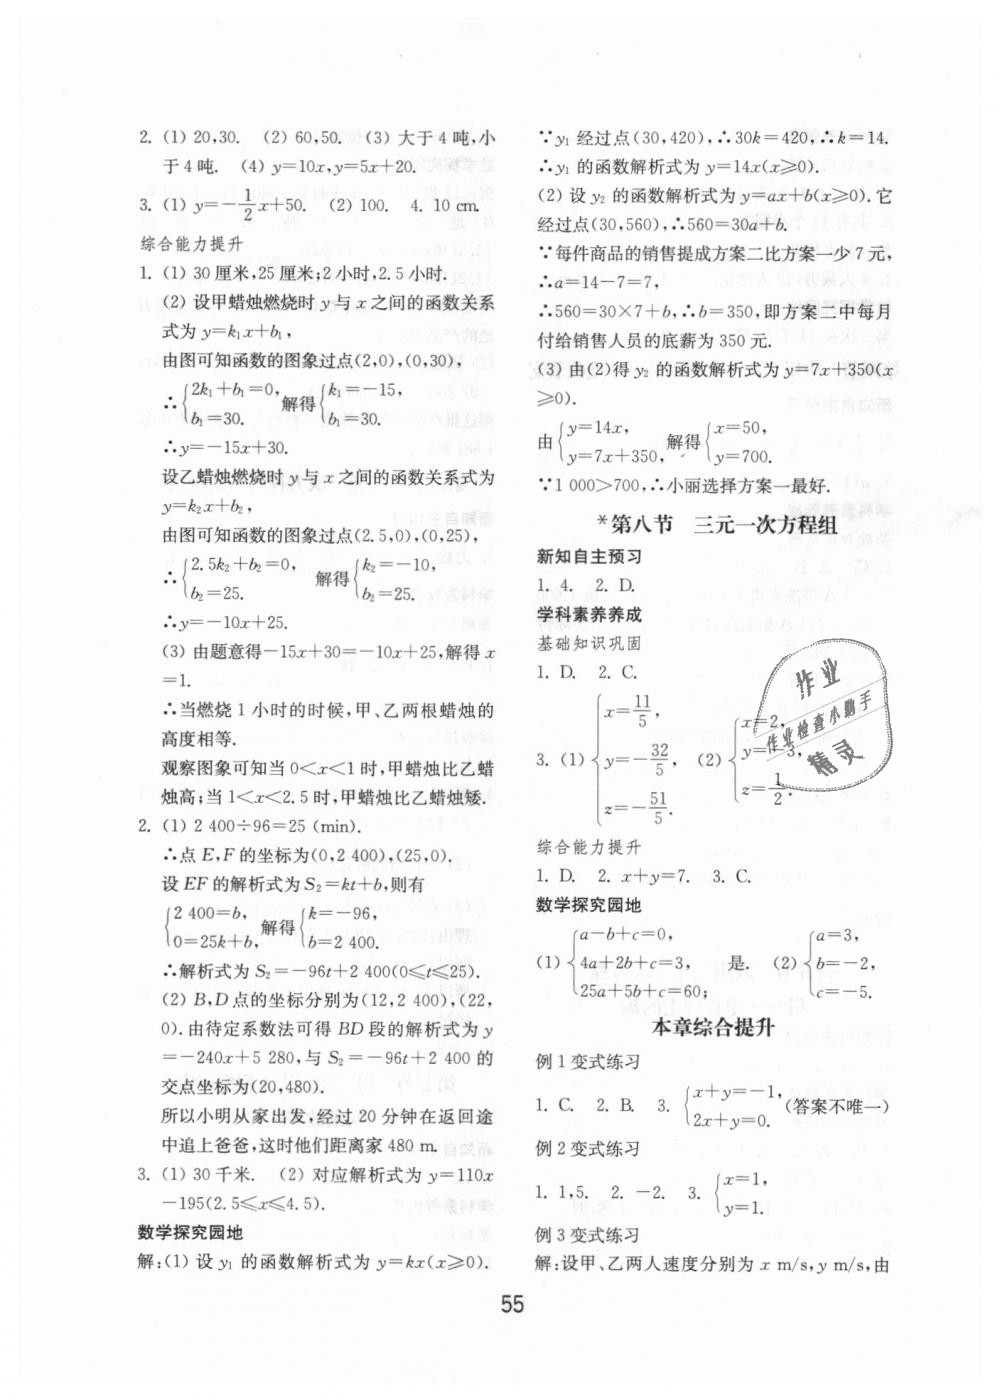 2. (1) 20,30. (2) 60,50. (3) 大于 4 吨,小
于 4 吨. (4) y=10x,y=5x+20.
3. (1) y=-1/2x+50. (2) 100. 4. 10 cm.
综合能力提升
1. (1) 30 厘米,25 厘米;2 小时,2.5 小时.
(2) 设甲蜡烛燃烧时 y 与 x 之间的函数关系
式为 y=k₁x+b₁,
由图可知函数的图象过点(2,0),(0,30),
∴{2k₁+b₁=0, b₁=30. 解得{k₁=-15, b₁=30.
∴y=-15x+30.
设乙蜡烛燃烧时 y 与 x 之间的函数关系式为
y=k₂x+b₂,
由图可知函数的图象过点(2.5,0),(0,25),
∴{2.5k₂+b₂=0, b₂=25. 解得{k₂=-10, b₂=25.
∴y=-10x+25.
(3) 由题意得-15x+30=-10x+25,解得 x
=1.
∴当燃烧 1 小时的时候,甲、乙两根蜡烛的
高度相等.
观察图象可知当 0<x<1 时,甲蜡烛比乙蜡
烛高;当 1<x<2.5 时,甲蜡烛比乙蜡烛矮.
2. (1) 2 400÷96=25 (min).
∴点 E,F 的坐标为(0,2 400),(25,0).
设 EF 的解析式为 S₂=kt+b,则有
{2 400=b, 0=25k+b, 解得{k=-96, b=2 400.
∴解析式为 S₂=-96t+2 400(0≤t≤25).
(2) B,D 点的坐标分别为(12,2 400),(22,
0).由待定系数法可得 BD 段的解析式为 y
=-240x+5 280,与 S₂=-96t+2 400 的
交点坐标为(20,480).
所以小明从家出发,经过 20 分钟在返回途
中追上爸爸,这时他们距离家 480 m.
3. (1) 30 千米. (2) 对应解析式为 y=110x
-195(2.5≤x≤4.5).
数学探究园地
解:(1) 设 y₁ 的函数解析式为 y=kx(x≥0).
∵y₁ 经过点(30,420),∴30k=420,∴k=14.
∴y₁ 的函数解析式为 y=14x(x≥0).
(2) 设 y₂ 的函数解析式为 y=ax+b(x≥0).它
经过点(30,560),∴560=30a+b.
∵每件商品的销售提成方案二比方案一少 7 元,
∴a=14-7=7,
∴560=30×7+b,∴b=350,即方案二中每月
付给销售人员的底薪为 350 元.
(3) 由(2)得 y₂ 的函数解析式为 y=7x+350(x
≥0).
由{y=14x, y=7x+350, 解得{x=50, y=700.
∵1 000>700,∴小丽选择方案一最好.
*第八节 三元一次方程组
新知自主预习
1. 4. 2. D.
学科素养养成
基础知识巩固
1. D. 2. C.
3. (1) {x=11/5, y=-32/5, z=-51/5. (2) {x=2, y=-3, z=1/2.
作业
作业检查小助手
精灵
综合能力提升
1. D. 2. x+y=7. 3. C.
数学探究园地
(1) {a-b+c=0, 4a+2b+c=3, 25a+5b+c=60; 是. (2) {a=3, b=-2, c=-5.
本章综合提升
例 1 变式练习
1. C. 2. B. 3. {x+y=-1, 2x+y=0. (答案不唯一)
例 2 变式练习
1. 1,5. 2. -2. 3. {x=1, y=1.
例 3 变式练习
解:设甲、乙两人速度分别为 x m/s,y m/s,由
55